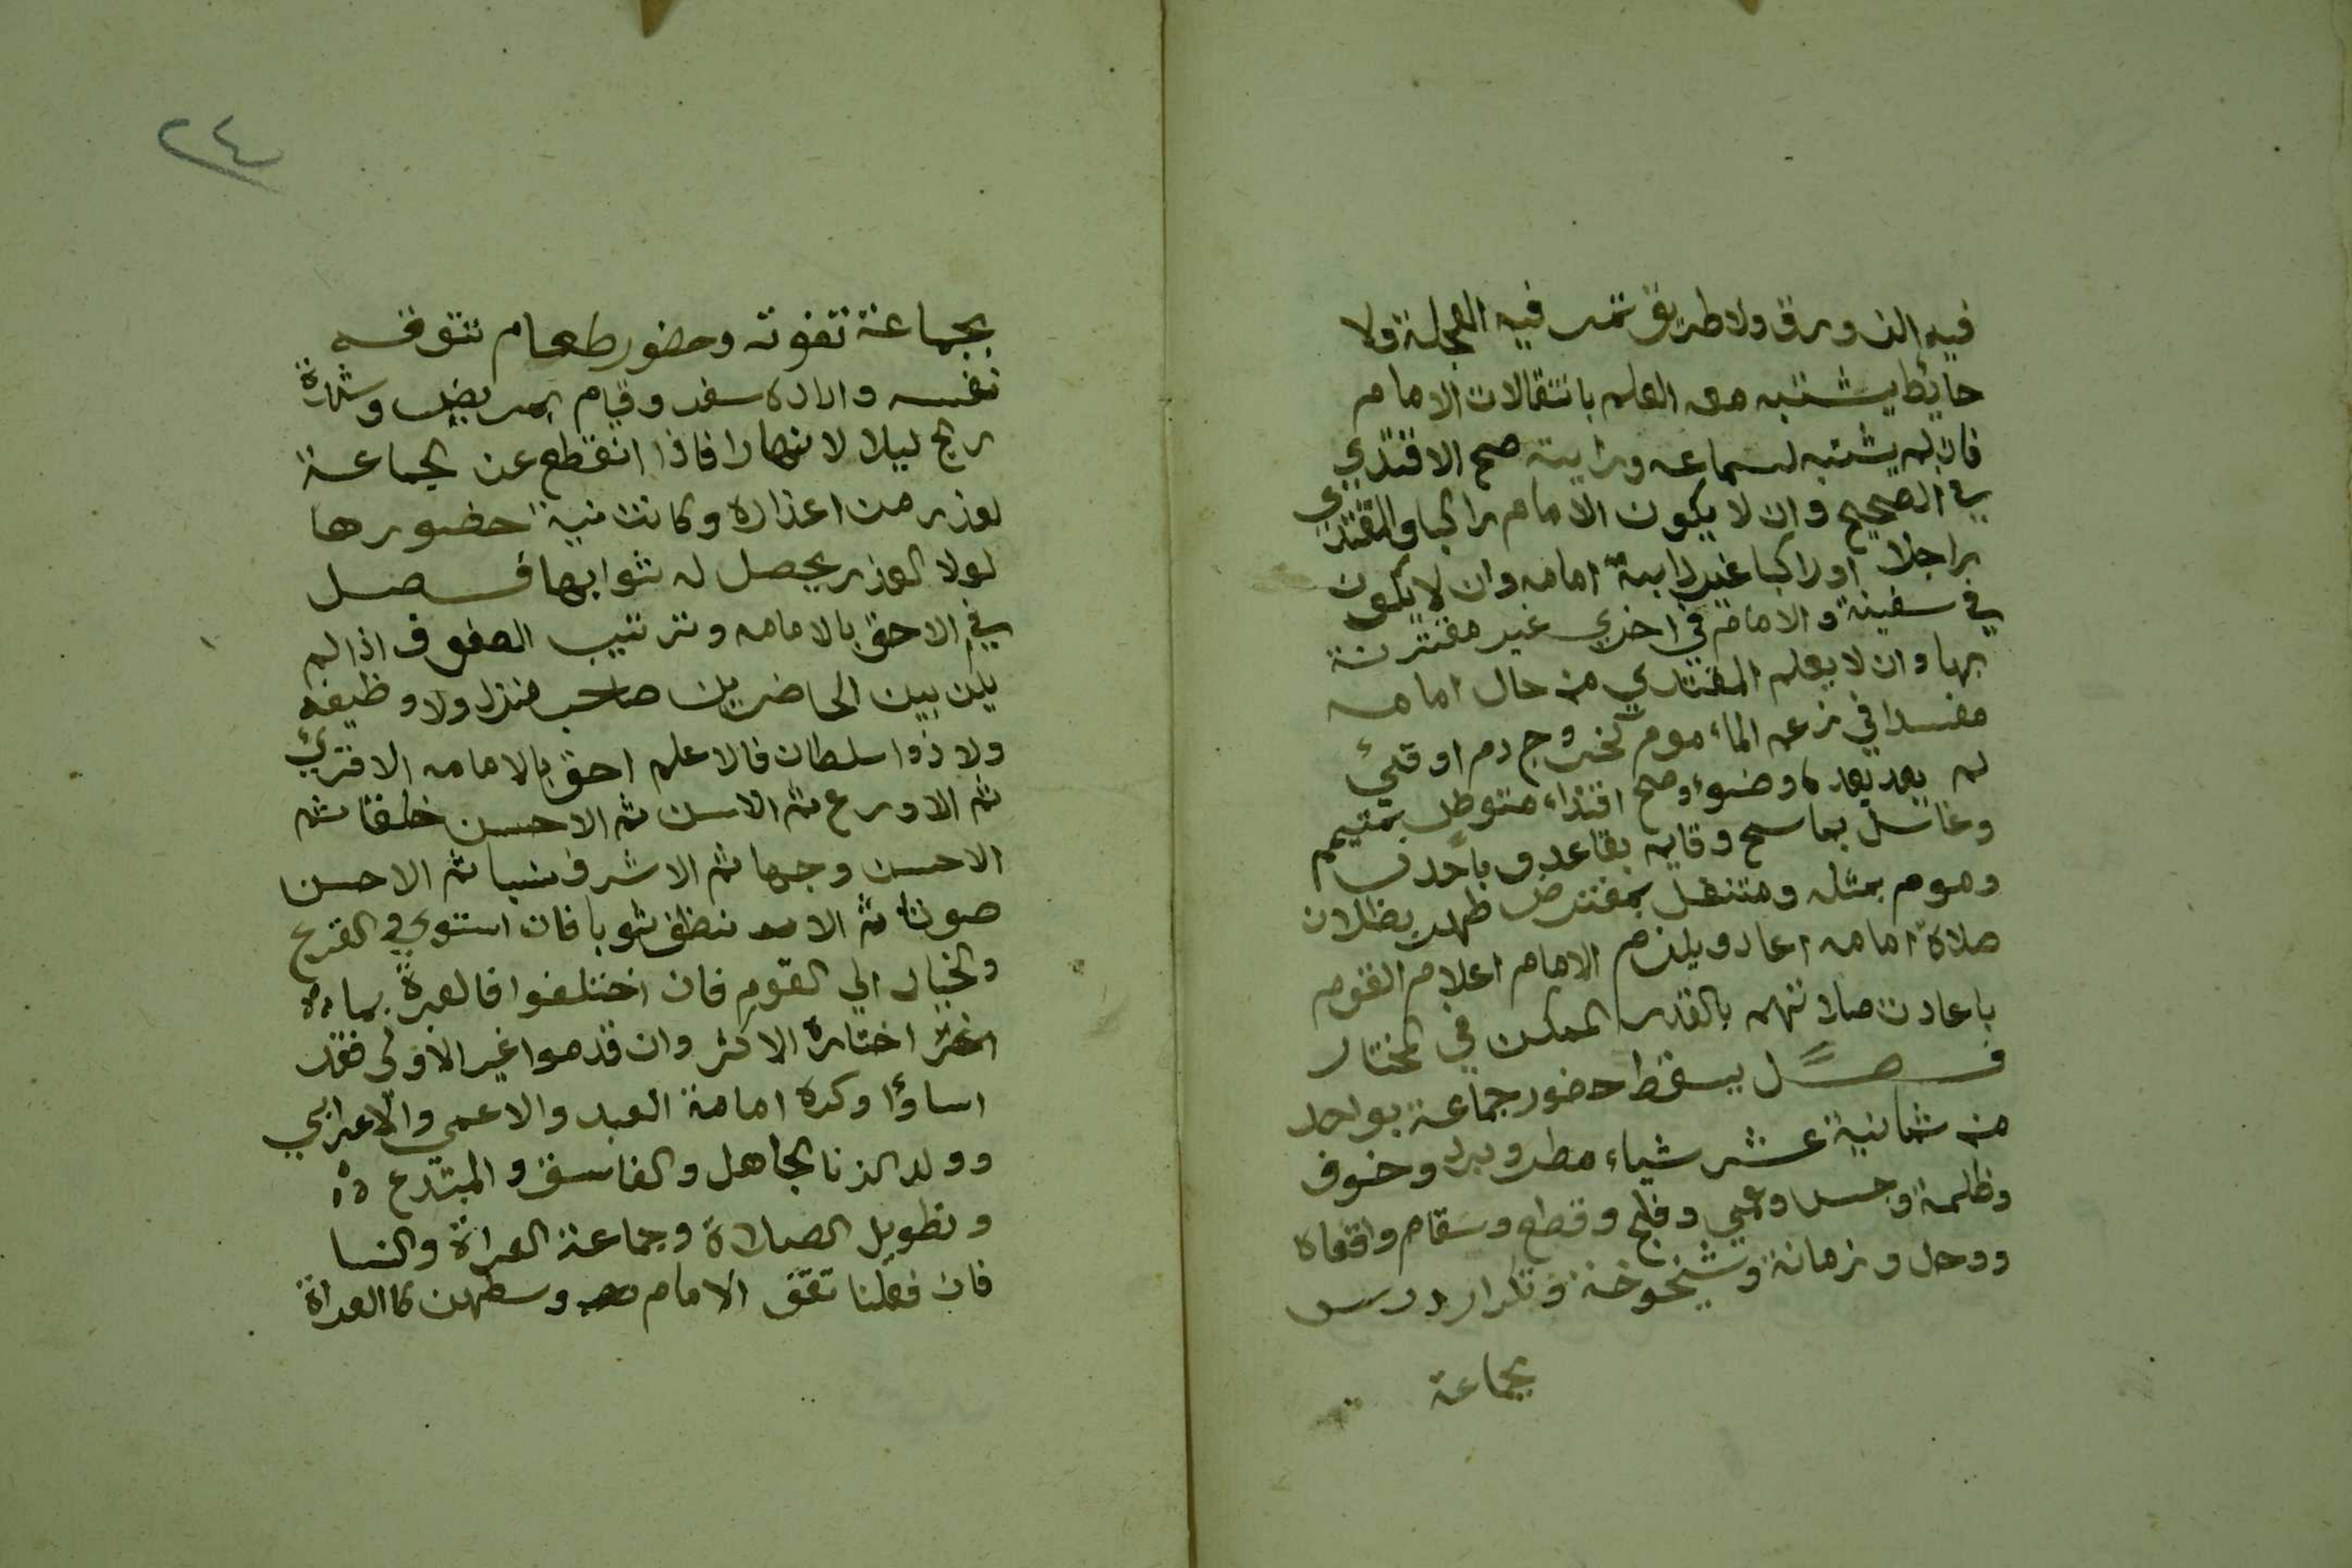 فيه الزورق ولا طريق تمر فيه العجلة ولا
حايط يشتبه معه العلم بانتقالات الامام
فان لم يشتبه لسماعه وراية صح الاقتدي
في الصحيح وان لا يكون الامام راكبا والمقتدي
راجلا اوراكبا غير دابة امامه وان لا يكون
في سفينة والامام في اخري غير مقترنة
بها وان لا يعلم المقتدي من حال امامه
مفسدا في زعم الماء موم كخروج دم اوقئ
لم يعد بعده وضوء وصح اقتداء متوظي بمتيمم
وغاسل بماسح وقايم بقاعد وباحدب
وموم بمثله ومتنفل بمفترض ظهر بطلان
صلاة امامه اعاد ويلزم الامام اعلام القوم
باعادت صلاتهم بالقدر الممكن في المختار
فصل يسقط حضور جماعة بواحد
من ثمانية عشر شياء مطر وبرد وخوف
وظلمة وحبس وعمي وفلج وقطع وسقام واقعاه
ووحل وزمانة وشيخوخة وتكرار درس
بجماعة
٢٤
بجماعة تفوته وحضور طعام تتوقه
نفسه وارادة سفر وقيام بمريض وشدة
ريح ليلا لا نهارا فاذا انقطع عن الجماعة
لعذر من اعذاره وكانت نيته حضورها
لولا العذر يحصل له ثوابها فصل
في الاحق بالامامه وترتيب الصفوف اذالم
يكن بين الحاضرين صاحب منزل ولا وظيفه
ولا ذوا سلطان فالاعلم احق بالامامه الاقرئ
ثم الاورع ثم الاسن ثم الاحسن خلقا ثم
الاحسن وجها ثم الاشرف نسبا ثم الاحسن
صوتا ثم الا نظف ثوبا فان استوي في القرع
والخيار الي القوم فان اختلفوا فالعبرة بما
اختاره الاكثر وان قدموا غير الاولي فقد
اساؤا وكره امامة العبد والاعمي والاعرابي
وولد الزنا الجاهل والفاسق والمبتدع
وتطويل الصلاة وجماعة العراة والنسا
فان فعلنا تقف الامام وسطهن كاالعراة